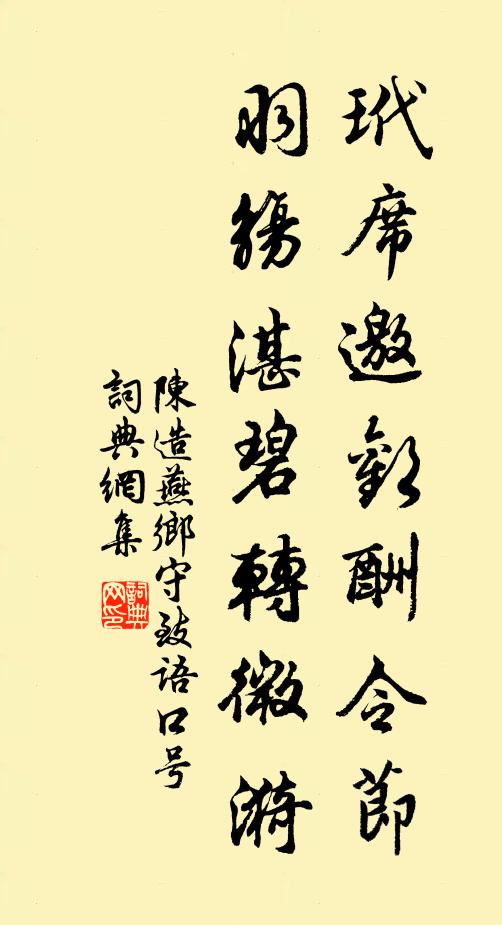 玳席邀歡酬令節
羽觴湛碧轉微漪
陳造燕鄉守致語口号
詞典網集
詞典
网印